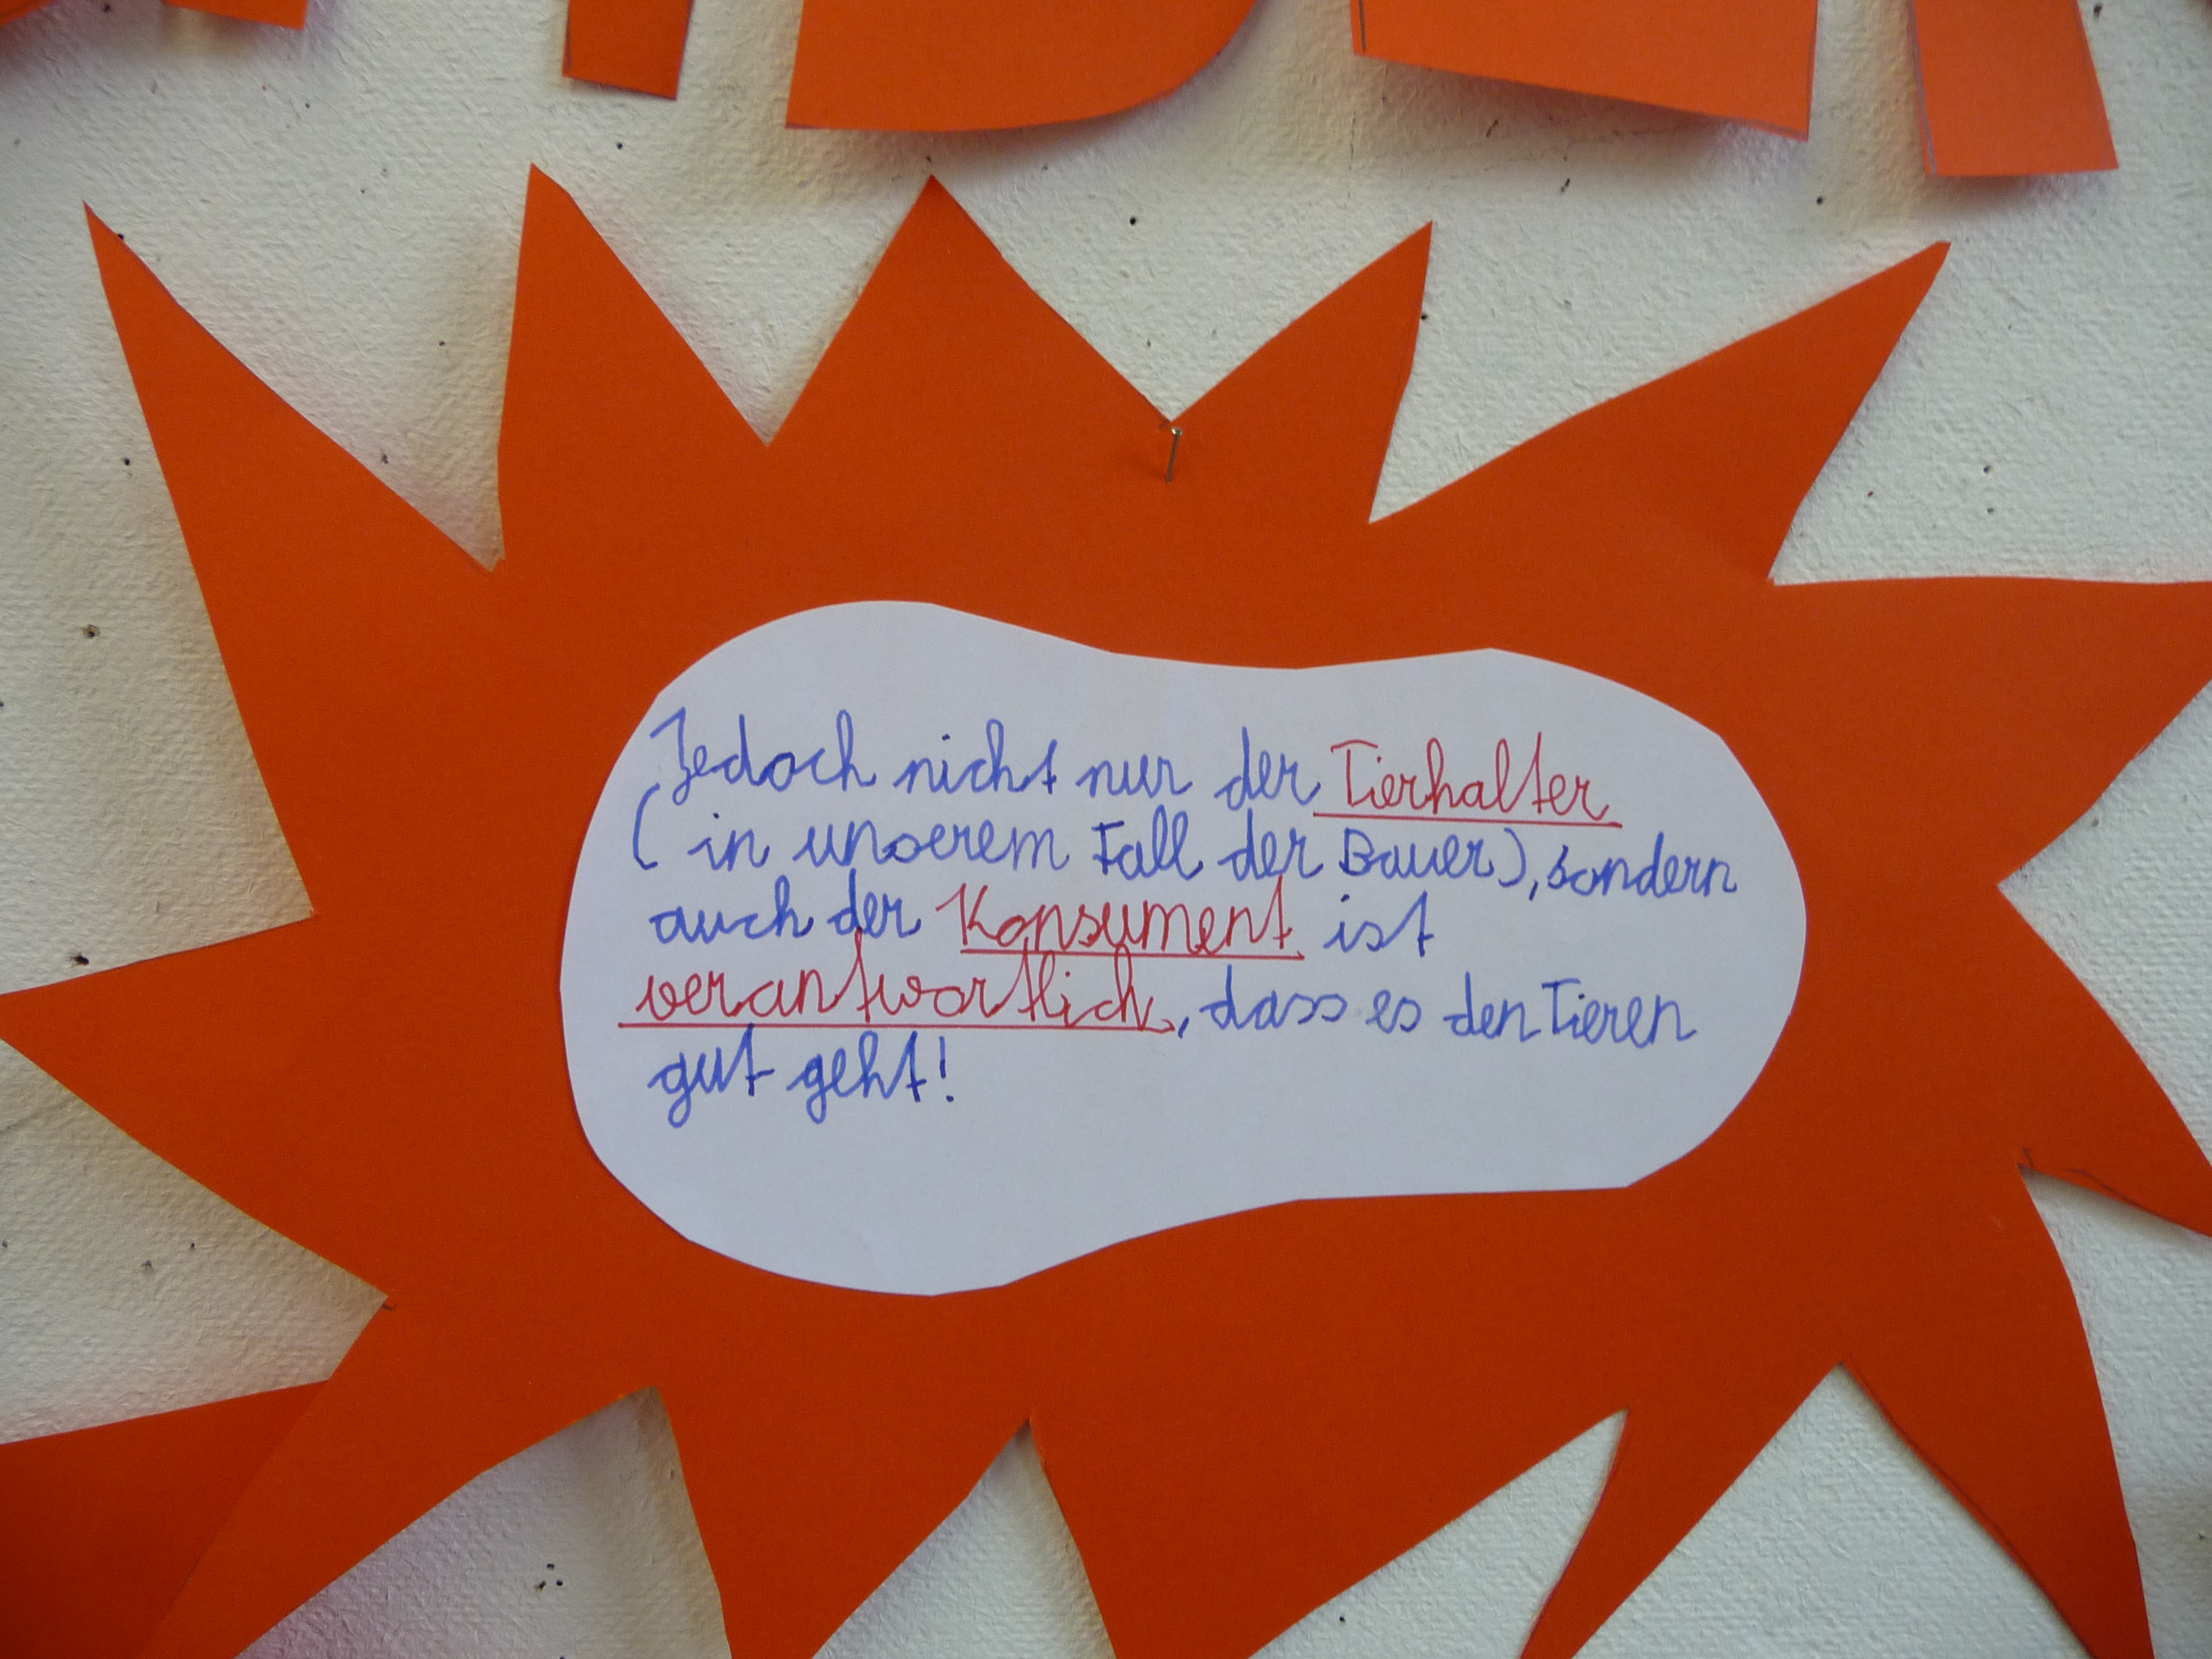 Jedoch nicht nur der Tierhalter
( in unserem Fall der Bauer), sondern
auch der Konsument ist
verantwortlich, dass es den Tieren
gut geht!